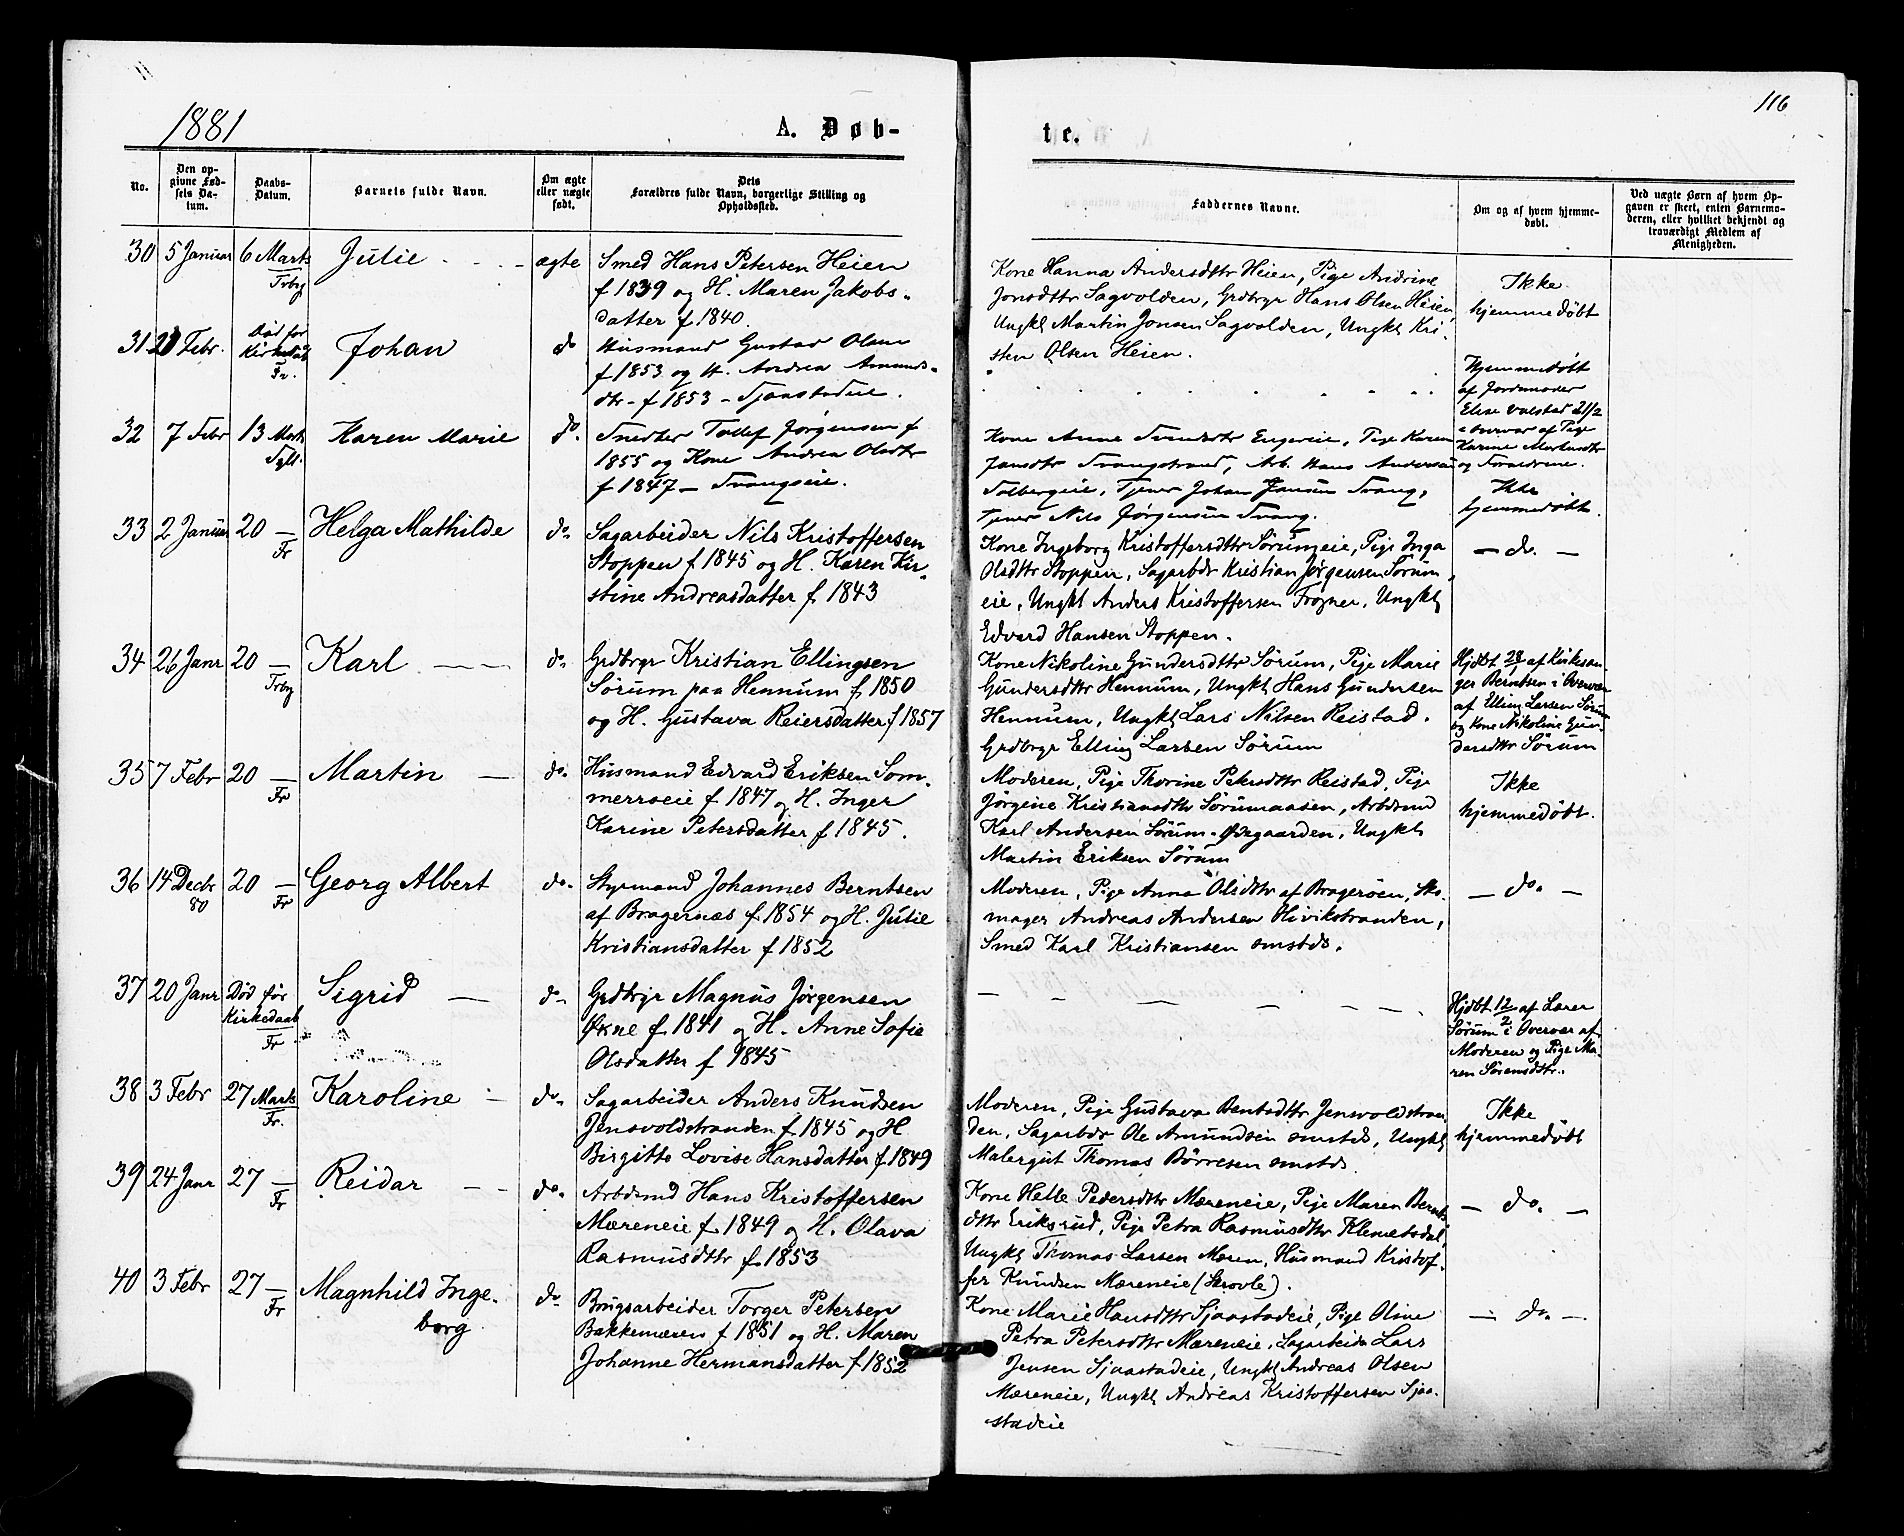 116
1881
A. Døb-
te.
No.
Den op-
givne Fød-
sels Da-
tum.
Daabs-
Datum.
Barnets fulde Navn.
Om ægte
eller uægte
født.
Dets
Forældres fulde Navn, borgerlige Stilling og
Opholdssted.
Faddernes Navne.
Om og af hvem hjemme-
døbt.
Ved uægte Børn af hvem Op-
gaven er skeet, enten Barnemo-
deren, eller hvilket bekjendt og
troværdigt Medlem af
Menigheden.
30 5 Januar 6 Marts Julie - - - ægte
Trby
Smed Hans Petersen Heien
f 1839 og H. Maren Jakobs-
datter f. 1840.
Kone Hanna Andersdttr Heien, Pige Andrine
Jonsdttr Sagvolden, Grdbrgr Hans Olsen Heien,
Ungkl Martin Jonsen Sagvolden, Ungkl Kri-
sten Olsen Heien.
Ikke
hjemmedøbt
31 Febr. Død før
Kirkedaab
Fr.
Johan do
Husmand Gustav Olsen
f 1853 og H. Andrea Amunds-
dtr - f 1853 - Sjaastadeie.
Hjemmedøbt
af Jordemoder
Elise Valstad 21/2
i overvær af Pige
Karine Mortensdtr
og Forældrene.
32 7 Febr 13 Marts Karen Marie do.
Syll.
Snedker Tollef Jørgensen f
1855 og Kone Andrea Olsdtr
f 1847 - Svangseie.
Kone Anne Engereie, Pige Karen
Jansdtr Svangstrand, Arb. Hans Andersen
Solbergeie, Tjener Johan Jansen Svang,
Tjener Nils Jørgensen Svang.
Ikke
hjemmedøbt.
33 2 Januar 20 - Helga Mathilde do
Fr
Sagarbeider Nils Kristoffersen
Stoppen f 1845 og H. Karen Kir-
stine Andreasdatter f. 1843
Kone Ingeborg Kristoffersdttr Sørumeie, Pige Inga
Olsdttr Stoppen, Sagarbdr Kristian Jørgensen Sørum-
eie, Ungkl Anders Kristoffersen Frogner, Ungkl
Edvard Hansen Stoppen.
- do. -
34 26 Janr 20 - Karl - - - do.
Trby
Grdbrgr Kristian Ellingsen
Sørum paa Hennum f. 1850
og H. Gustava Reiersdatter f 1857
Kone Nikoline Gundersdttr Sørum, Pige Marie
Gundersdttr Hennum, Ungkl Hans Gundersen
Hennum, Ungkl Lars Nilsen Reistad.
Grdbrgr Elling Larsen Sørum
Hjdbt 28/1 af Kirkesan-
ger Berntsen i Overvær
af Elling Larsen Sørum
og Kone Nikoline Gun-
dersdttr Sørum
35 7 Febr 20 - Martin - do.
Fr
Husmand Edvard Eriksen Som-
merroeie f 1847 og H. Inger
Karine Petersdatter f 1845.
Moderen, Pige Thorine Pedersdttr Reistad, Pige
Jørgine Kristiansdttr Sørumaasen, Arbdsmd
Karl Andersen Sørum-Ødegaarden, Ungkl
Martin Eriksen Sørum
Ikke
hjemmedøbt.
36 14 Decbr 20 - Georg Albert do.
80 Fr
Styrmand Johannes Berntsen
af Bragernæs f. 1854 og H. Julie
Kristiansdatter f. 1852
Moderen, Pige Anna Olsdttr af Bragerøen, Sko-
mager Andreas Andersen Hvikstranden,
Smed Karl Kristiansen smstds.
- do. -
37 20 Janr Død før Sigrid - do
Kirkedaab
Fr
Grdbrgr Magnus Jørgensen
Økne f. 1841 og H. Anne Sofie
Olsdatter f 1845
- - - - - - -
Hjdbt 12/2 af Lærer
Sørum i Overvær af
Moderen og Pige Ma-
ren Sørensdttr.
38 3 Febr 27 Marts Karoline - do.
Fr.
Sagarbeider Anders Knudsen
Jensvoldstranden f. 1845 og H
Birgitte Lovise Hansdatter f. 1849
Moderen, Pige Gustava Bentsdttr Jensvoldstran-
den, Sagarbdr Ole Amundsen smstds, Ungkl
Malergut Thomas Børresen smstds.
Ikke
hjemmedøbt
39 24 Janr 27 - Reidar - - do.
Fr
Arbdsmd Hans Kristoffersen
Mæreneie f 1849 og H. Olava
Rasmusdttr f. 1853
Kone Helle Pedersdttr Mæreneie, Pige Maren Bernts-
dttr Eriksrud, Pige Petra Rasmusdttr Klemetsdal,
Ungkl Thomas Larsen Mæren, Husmand Kristof-
fer Knudsen Mæreneie (Skrovle).
- do. -
40 3 Febr 27 - Magnhild Inge-
borg. do
Fr
Brugsarbeider Torger Petersen
Bakkemæren f. 1851 og H. Maren
Johanne Hermansdatter f 1852
Kone Marie Hansdttr Sjaastadeie, Pige Oline
Petra Petersdttr Mæreneie, Sagarbeider Lars
Jensen Sjaastadeie, Ungkl Andreas Olsen
Mæreneie, Ungkl Andreas Kristoffersen Sjaa-
stadeie
- do. -